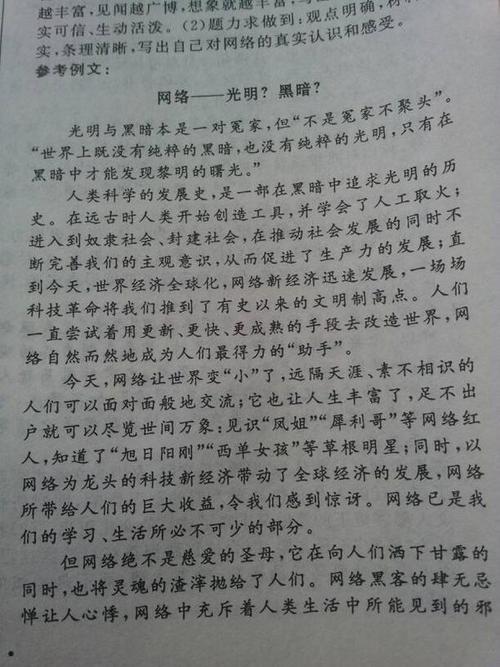 越丰富,见闻越广博,想象就越丰富,
实可信、生动活泼。(2)题力求做到:观点明确,材
实,条理清晰,写出自己对网络的真实认识和感受。
参考例文:
网络——光明?黑暗?
光明与黑暗本是一对冤家,但“不是冤家不聚头”。
“世界上既没有纯粹的黑暗,也没有纯粹的光明,只有在
黑暗中才能发现黎明的曙光。”
人类科学的发展史,是一部在黑暗中追求光明的历
史。在远古时人类开始创造工具,并学会了人工取火;
进入到奴隶社会、封建社会,在推动社会发展的同时不
断完善我们的主观意识,从而促进了生产力的发展;直
到今天,世界经济全球化,网络新经济迅速发展,一场场
科技革命将我们推到了有史以来的文明制高点。人们
一直尝试着用更新、更快、更成熟的手段去改造世界,网
络自然而然地成为人们最得力的“助手”。
今天,网络让世界变“小”了,远隔天涯、素不相识的
人们可以面对面般地交流;它也让人生丰富了,足不出
户就可以尽览世间万象:见识“凤姐”“犀利哥”等网络红
人,知道了“旭日阳刚”“西单女孩”等草根明星;同时,以
网络为龙头的科技新经济带动了全球经济的发展,网络
所带给人们的巨大收益,令我们感到惊讶。网络已是我
们的学习、生活所必不可少的部分。
但网络绝不是慈爱的圣母,它在向人们洒下甘露的
同时,也将灵魂的渣滓抛给了人们。网络黑客的肆无忌
惮让人心悸,网络中充斥着人类生活中所能见到的邪